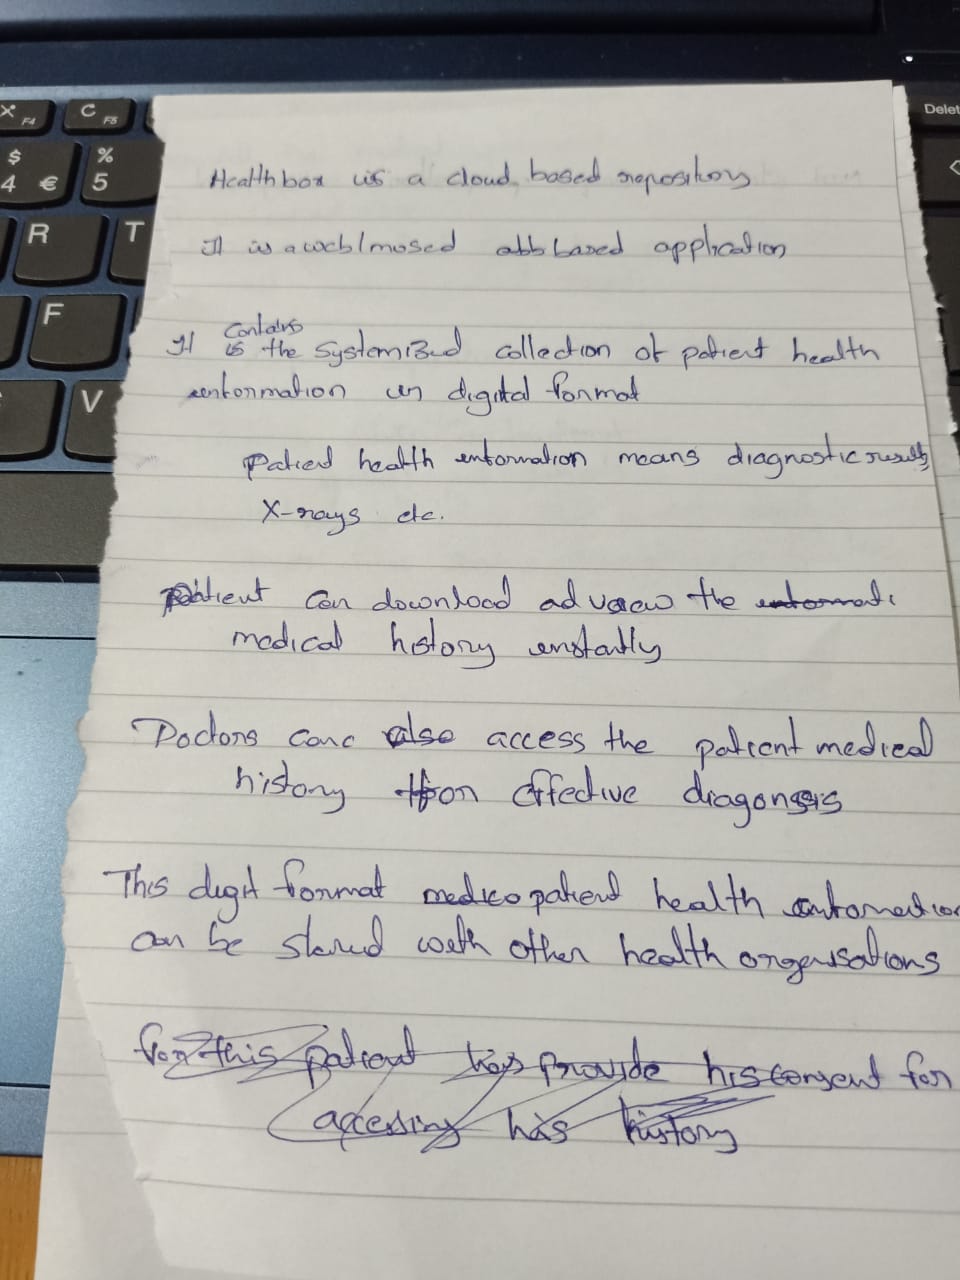 X F4 C F5 Delet
$ 4 € % 5
R T
F
V
Healthbox is a cloud based repository
It is a web/ based application
contains
It is the systemized collection of patient health
information in digital format
patient health information means diagnostic results
X-rays etc.
patient can download ad view the
medical history instantly
Doctors can also access the patient medical
history for effective diagonsis
This digit format patient health information
can be with other health organisations
for this patient has provide his consent for
accessing his history